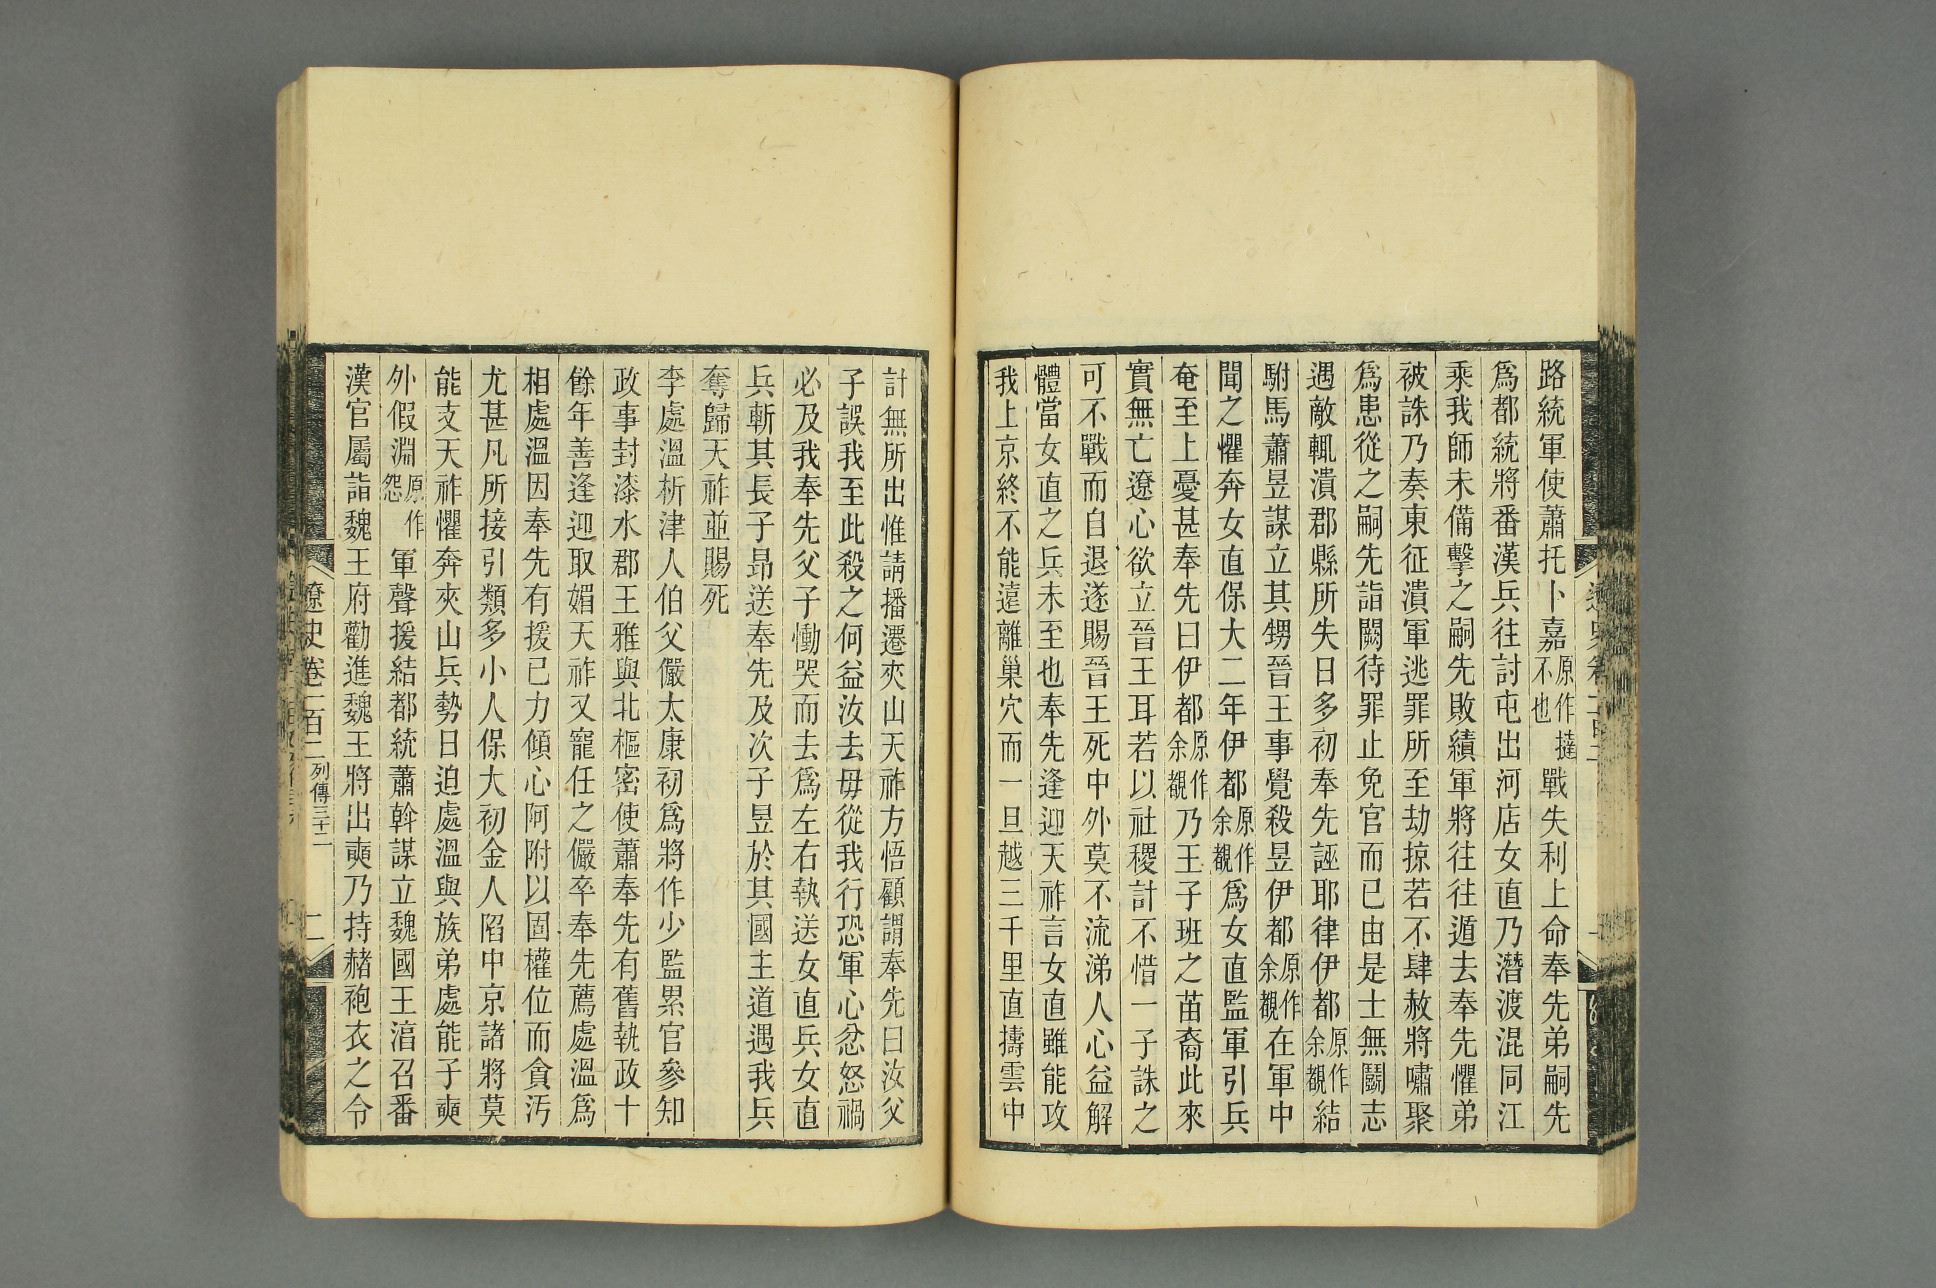 路統軍使蕭托卜嘉原作撻不也戰失利上命奉先弟嗣先
爲都統將番漢兵往討屯出河店女直乃潛渡混同江
乘我師未備擊之嗣先敗績軍將往往遁去奉先懼弟
被誅乃奏東征潰軍逃罪所至劫掠若不肆赦將嘯聚
爲患從之嗣先詣闕待罪止免官而已由是士無鬭志
遇敵輒潰郡縣所失日多初奉先誣耶律伊都原作余覩結
駙馬蕭昱謀立其甥晉王事覺殺昱伊都原作余覩在軍中
聞之懼奔女直保大二年伊都原作余覩爲女直監軍引兵
奄至上憂甚奉先曰伊都原作余覩乃王子班之苗裔此來
實無亡遼心欲立晉王耳若以社稷計不惜一子誅之
可不戰而自退遂賜晉王死中外莫不流涕人心益解
體當女直之兵未至也奉先逢迎天祚言女直雖能攻
我上京終不能遠離巢穴而一旦越三千里直擣雲中
計無所出惟請播遷夾山天祚方悟顧謂奉先曰汝父
子誤我至此殺之何益汝去毋從我行恐軍心忿怒禍
必及我奉先父子慟哭而去爲左右執送女直兵女直
兵斬其長子昂送奉先及次子昱於其國主道遇我兵
奪歸天祚並賜死
李處溫析津人伯父儼太康初爲將作少監累官參知
政事封漆水郡王雅與北樞密使蕭奉先有舊執政十
餘年善逢迎取媚天祚又寵任之儼卒奉先薦處溫爲
相處溫因奉先有援己力傾心阿附以固權位而貪汚
尤甚凡所接引類多小人保大初金人陷中京諸將莫
能支天祚懼奔夾山兵勢日迫處溫與族弟處能子奭
外假淵原作怨軍聲援結都統蕭幹謀立魏國王湻召番
漢官屬詣魏王府勸進魏王將出奭乃持赭袍衣之令
遼史卷一百二 列傳三十二 二